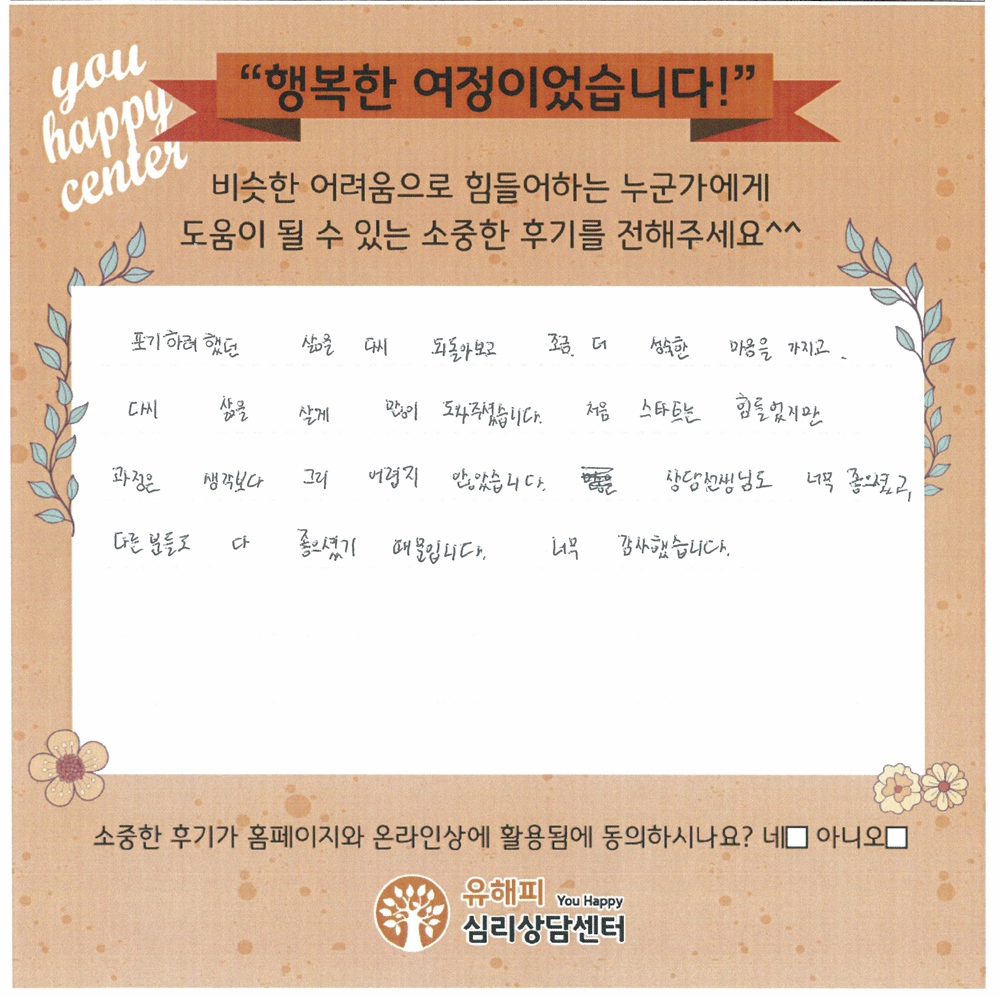 you
happy
center
“행복한 여정이었습니다!”
비슷한 어려움으로 힘들어하는 누군가에게
도움이 될 수 있는 소중한 후기를 전해주세요^^
포기하려 했던 삶을 다시 되돌아보고 조금 더 성숙한 마음을 가지고.
다시 삶을 살게 많이 도와주셨습니다. 처음 스타트는 힘들었지만
과정은 생각보다 그리 어렵지 않았습니다. 상담선생님도 너무 좋으셨고,
다른 분들도 다 좋으셨기 때문입니다. 너무 감사했습니다.
소중한 후기가 홈페이지와 온라인상에 활용됨에 동의하시나요? 네□ 아니오□
유해피 You Happy
심리상담센터